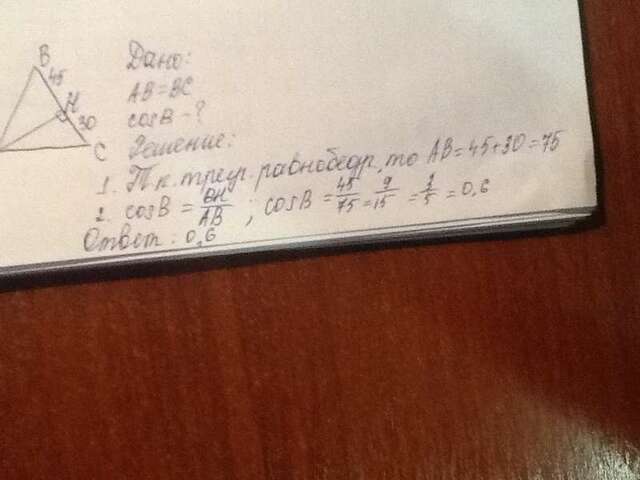 B
45
H
30
C
Дано:
AB = BC
cos B - ?
Решение:
1. Т.к. треуг. равнобедр., то AB = 45 + 30 = 75
2. cos B = BH/AB, cos B = 45/75 = 9/15 = 3/5 = 0,6
Ответ: 0,6